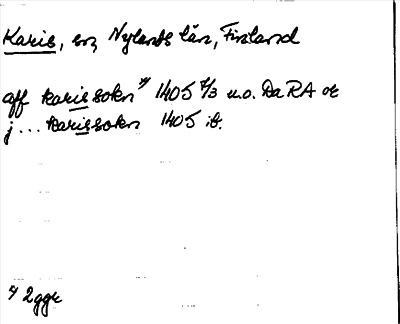 Karis, sn, Nylands län, Finland
aff karissokn *) 1405 7/3 u.o. Da RA or
j ... karissokn 1405 ib.
*) 2 ggr